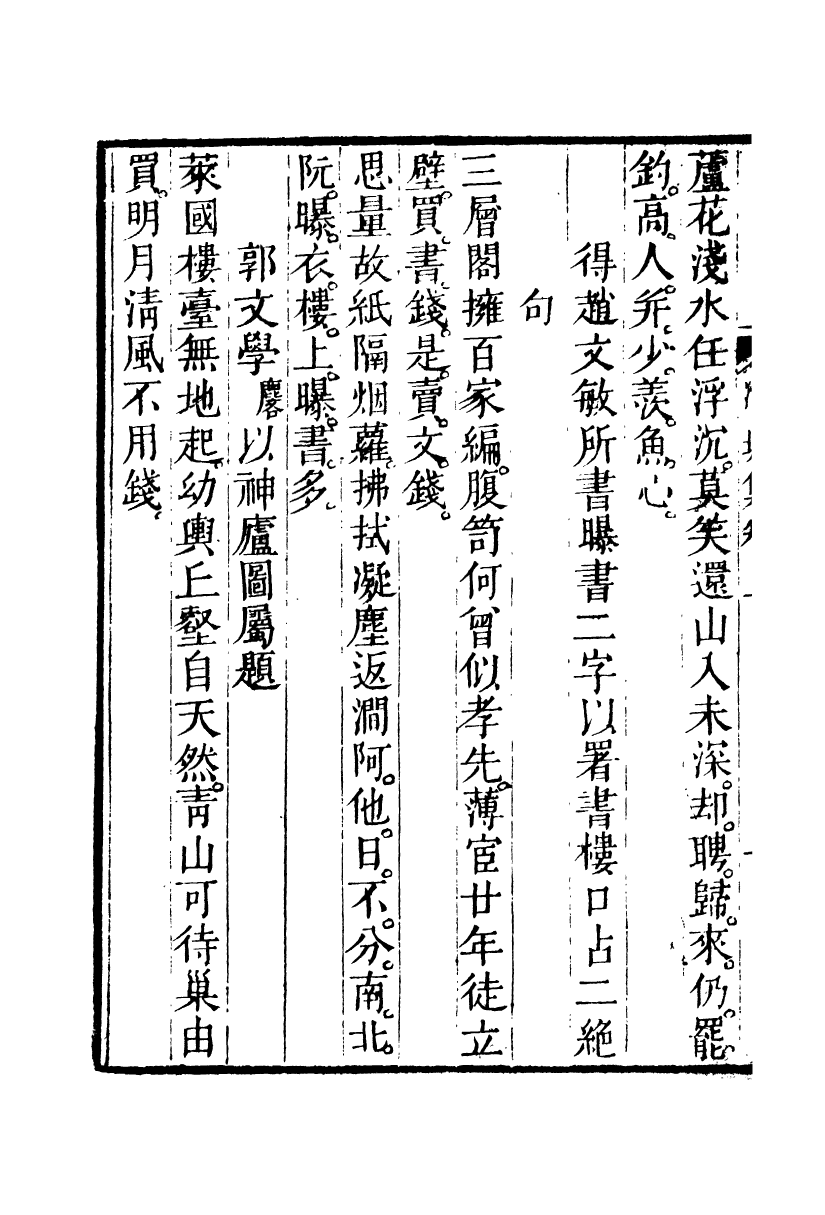 蘆花淺水任浮沉莫笑還山入未深却聘歸來仍罷
釣高人幷少羨魚心
得趙文敏所書曝書二字以署書樓口占二絕
句
三層閣擁百家編腹笥何曾似孝先薄宦廿年徒立
壁買書錢是賣文錢
思量故紙隔烟蘿拂拭凝塵返澗阿他日不分南北
阮曝衣樓上曝書多
郭文學麐以神廬圖屬題
萊國樓臺無地起幼輿丘壑自天然靑山可待巢由
買明月淸風不用錢